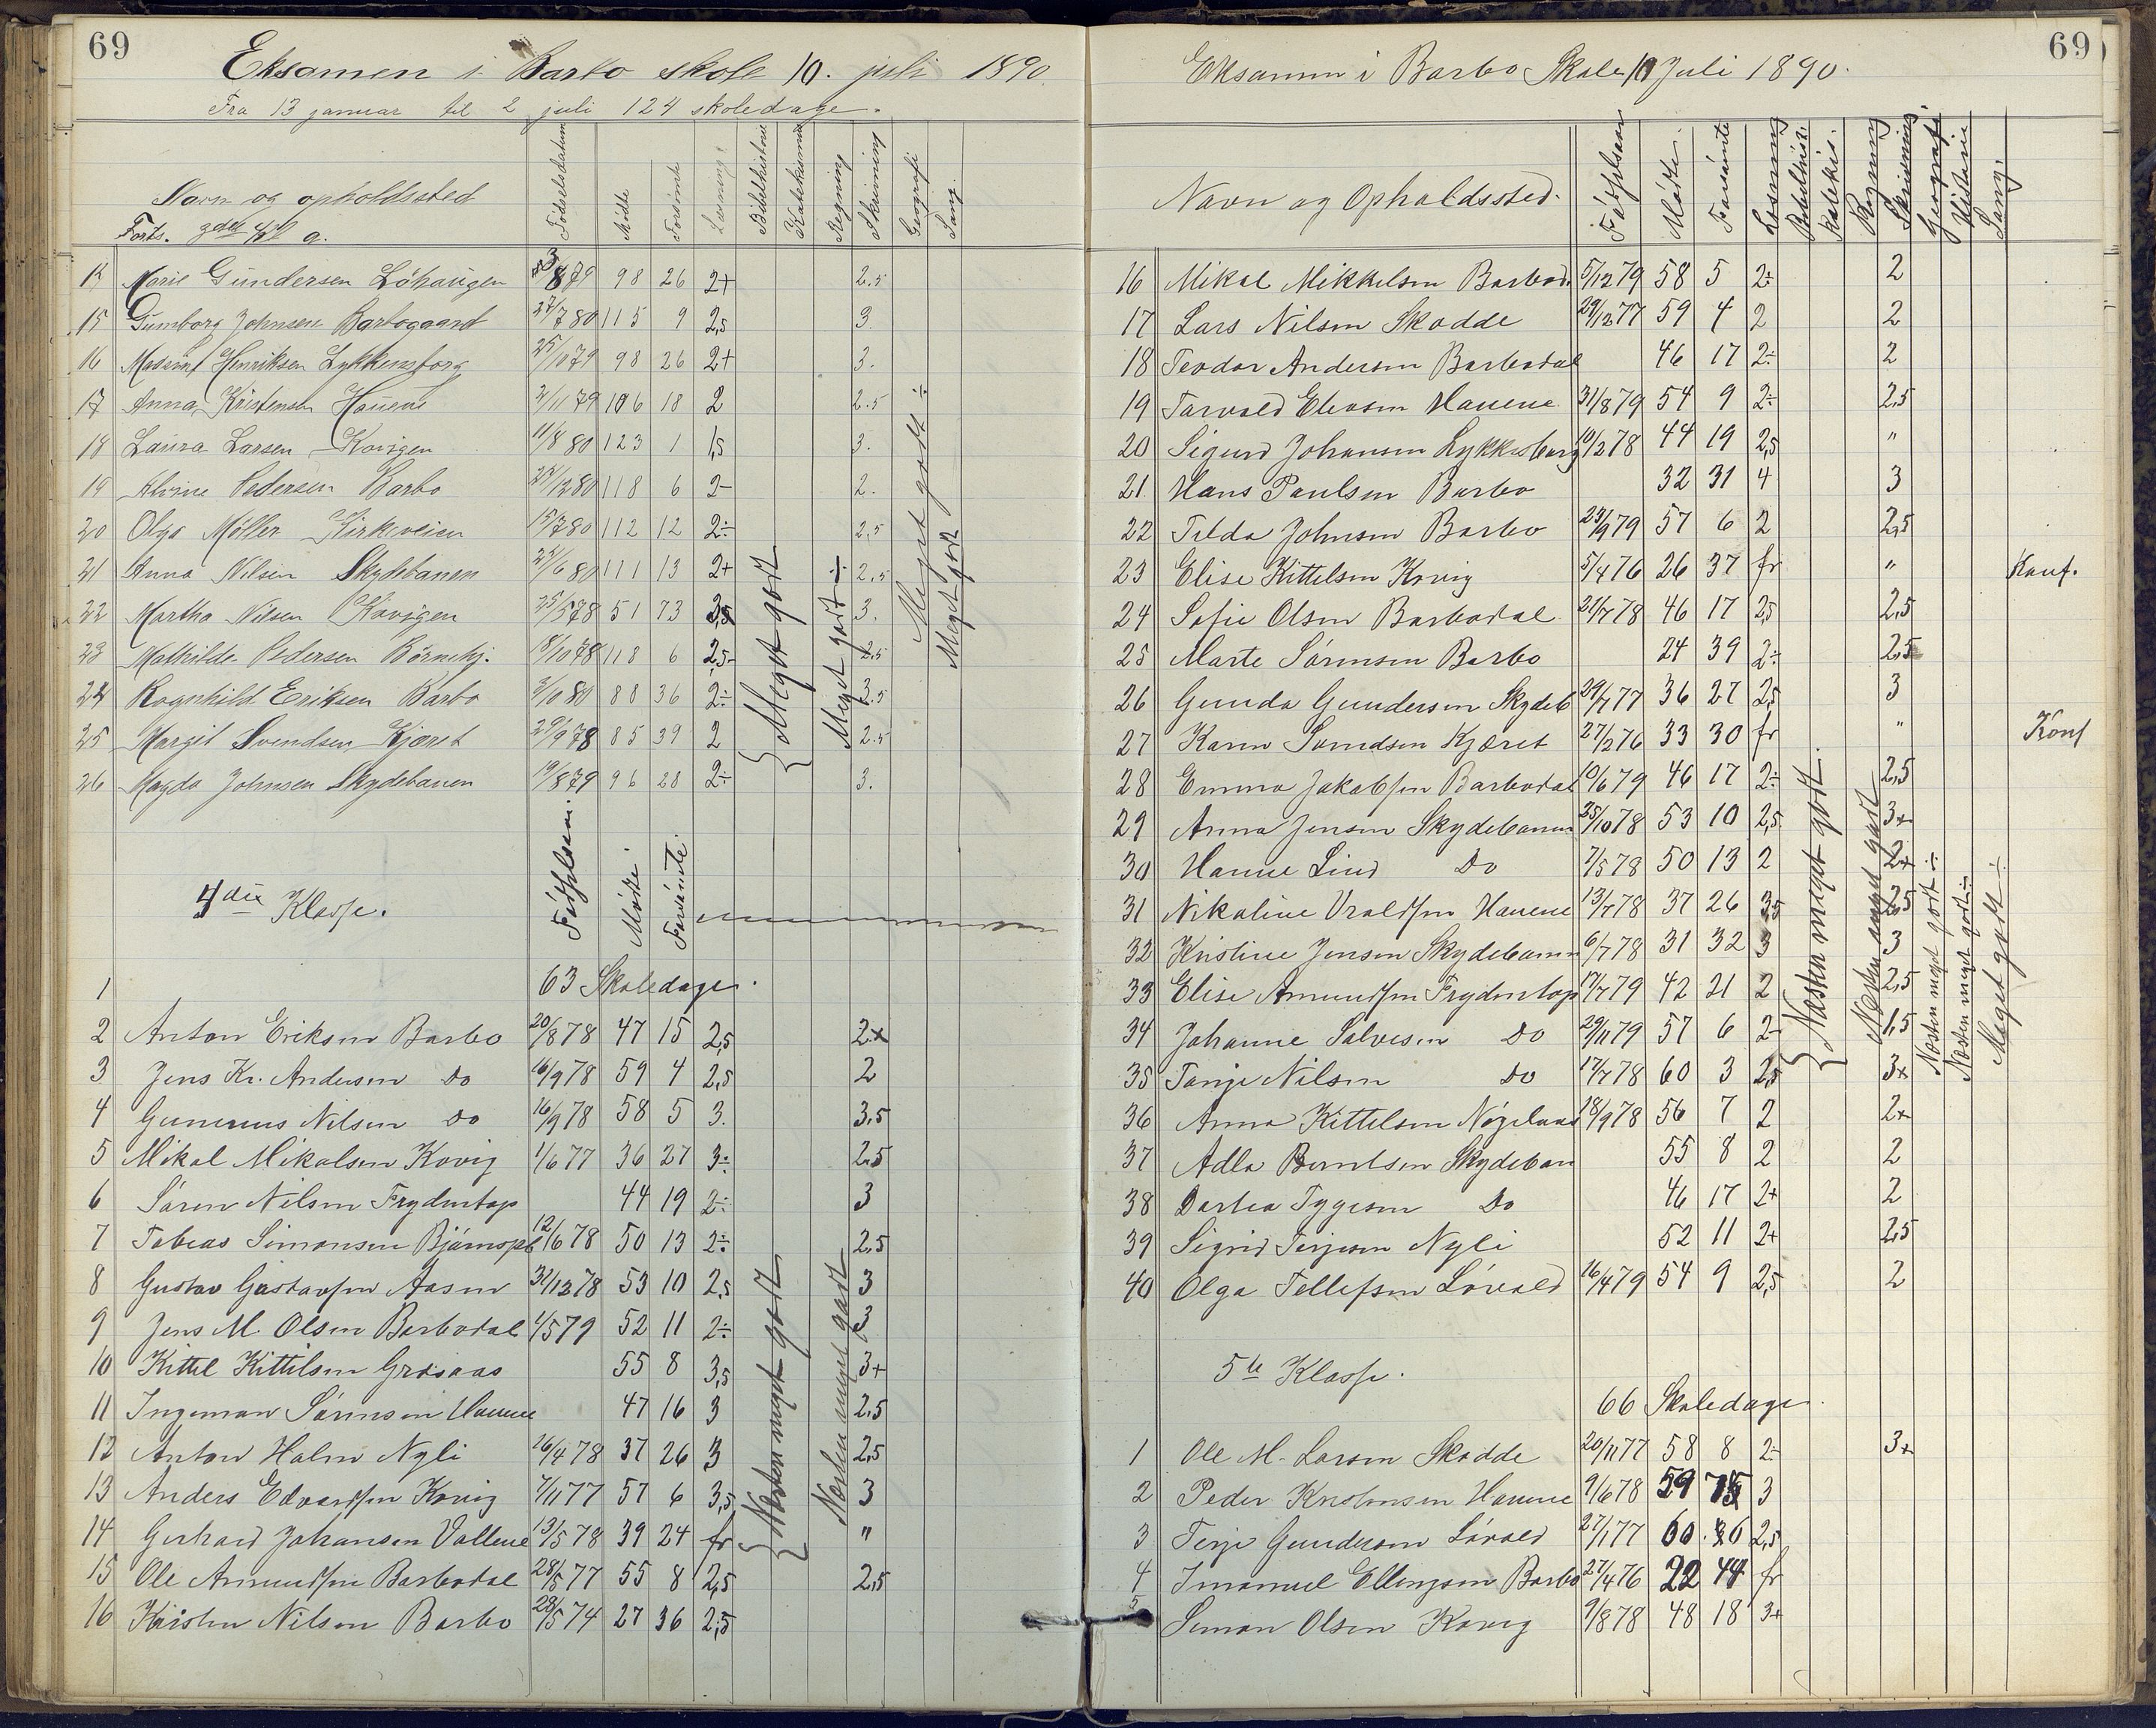 69
Eksamen i Barbo skole 10. juli 1890
Fra 13 januar til 2 juli 124 skoledage.
Navn og opholdssted Fødselsdatum Mødte Forsømte Læsning Bibelhistorie Katekismus Regning Skrivning Geografi Sang.
Forts. 3die kl a.
14 Marie Gundersen Löhaugen 8 79 98 26 2+ 2.5
15 Gumborg Johnsen Barbogaard 27/7 80 115 9 2,5 3.
16 Henriksen Lykkensborg 25/10 79 98 26 2+ 3.
17 Anna Kristensen Hauene 2/11 79 106 18 2 2.5
18 Laura Larsen Kovigen 11/8 80 123 1 1,5 3.
19 Alvine Pedersen Barbo 118 6 2- 2.
20 Olga Möller Kirkeveien 15/7 80 112 12 2÷ 2,5
21 Anna Nilsen Skydebanen 25/6 80 111 13 2+ 2,5
22 Martha Nilsen Kovigen 25/5 78 51 73 3,5 3.
23 Mathilde Pedersen Börnehj. 18/10 78 118 6 2,5- 2.5
24 Ragnhild Eriksen Barbo 2/10 80 88 36 2÷ 3.5
25 Margit Svendsen Kjæret 29/9 78 85 39 2 2.5
26 Magda Johnsen Skydebanen 19/8 79 96 28 2÷ 3.
Meget godt
Meget godt ÷
Meget godt ÷
Meget godt
4die Klasse. Fødselsaar Mødte Forsømte
1 63 Skoledage.
2 Anton Eriksen Barbo 20/8 78 47 15 2,5 2+
3 Jens Kr. Andersen Do 16/9 78 59 4 2,5 2
4 Gunerius Nilsen Do 16/9 78 58 5 3. 3,5
5 Mikal Mikalsen Kovig 1/6 77 36 27 3÷ 2,5
6 Sören Nilsen Frydentop 44 19 2÷ 3
7 Tobias Simonsen 12/6 78 50 13 2÷ 2,5
8 Gustav Gustavsen Aasen 31/12 78 53 10 2,5 3
9 Jens M. Olsen Barbodal 1/5 79 52 11 2÷ 3
10 Kittel Kittilsen Græsaas 55 8 3,5 3+
11 Ingeman Sörensen Hauene 47 16 3 2,5
12 Anton Holm Nyli 26/4 78 37 26 3 2,5
13 Anders Edvardsen Kovig 7/11 77 57 6 3,5 3
14 Gerhard Johansen Vollene 13/5 78 39 24 fr "
15 Ole Amundsen Barbodal 28/5 77 55 8 2,5 2,5
16 Kristen Nilsen Barbo 28/5 74 27 36 2,5
Næsten meget godt
Næsten meget godt
69
Eksamen i Barbo Skole 10 Juli 1890.
Navn og Opholdssted. Fødselsaar Mødte. Forsømte Læsning Bibelhist. Katekis. Regning Skrivning Geografi Historie Sang.
16 Mikal Mikkelsen Barbod. 5/12 79 58 5 2÷ 2
17 Lars Nilsen Skodde 29/12 77 59 4 2 2
18 Teodor Andersen Barbodal 46 17 2÷ 2
19 Torvald Elevsen Hauene 31/8 79 54 9 2÷ 2,5
20 Sigurd Johansen Lykkesborg 10/2 78 44 19 2,5 "
21 Hans Paulsen Barbo 32 31 4 3
22 Tilda Johnsen Barbo 23/9 79 57 6 2 2,5
23 Elise Kittelsen Kovig 5/4 76 26 37 fr " Konf.
24 Sofie Olsen Barbodal 21/7 78 46 17 2,5 2,5
25 Marte Sörensen Barbo 24 39 2÷ 2,5
26 Gunda Gundersen Skydeb 29/7 77 36 27 2,5 3
27 Karen Svendsen Kjæret 27/2 76 33 30 fr " Konf
28 Emma Jakobsen Barbodal 10/6 79 46 17 2÷ 2,5
29 Anna Jensen Skydebanen 25/10 78 53 10 2,5 3+
30 Hanne Lind Do 7/5 78 50 13 2 2+
31 Nikoline Vraldsen Hauene 13/7 78 37 26 3,5 2,5
32 Kristine Jensen Skydebanen 6/7 78 31 32 3 3
33 Elise Amundsen Frydentop 17/7 79 42 21 2 2,5
34 Johanne Salvesen Do 29/11 79 57 6 2÷ 1,5
35 Tonje Nilsen Do 17/7 78 60 3 2,5 3+
36 Anna Kittelsen 18/9 78 56 7 2 2+
37 Adla Berntsen Skydeban 55 8 2 2
38 Dortea Tygesen Do 46 17 2+ 2
39 Sigrid Terjesen Nyli 52 11 2+ 2,5
40 Olga Tellefsen Lövold 16/4 79 54 9 2,5 2
Næsten meget godt.
Næsten meget godt
Næsten meget godt ÷
Næsten meget godt ÷
Meget godt ÷
5te Klasse.
66 Skoledage.
1 Ole M. Larsen Skodde 20/11 77 58 8 2÷ 3+
2 Peder Kristensen Hauene 9/6 78 59 3
3 Terje Gundersen Lövold 27/1 77 60 6 2,5
4 Imanuel Ellingsen Barbo 27/4 76 22 44 fr
5 Simon Olsen Kovig 9/8 78 48 18 3+